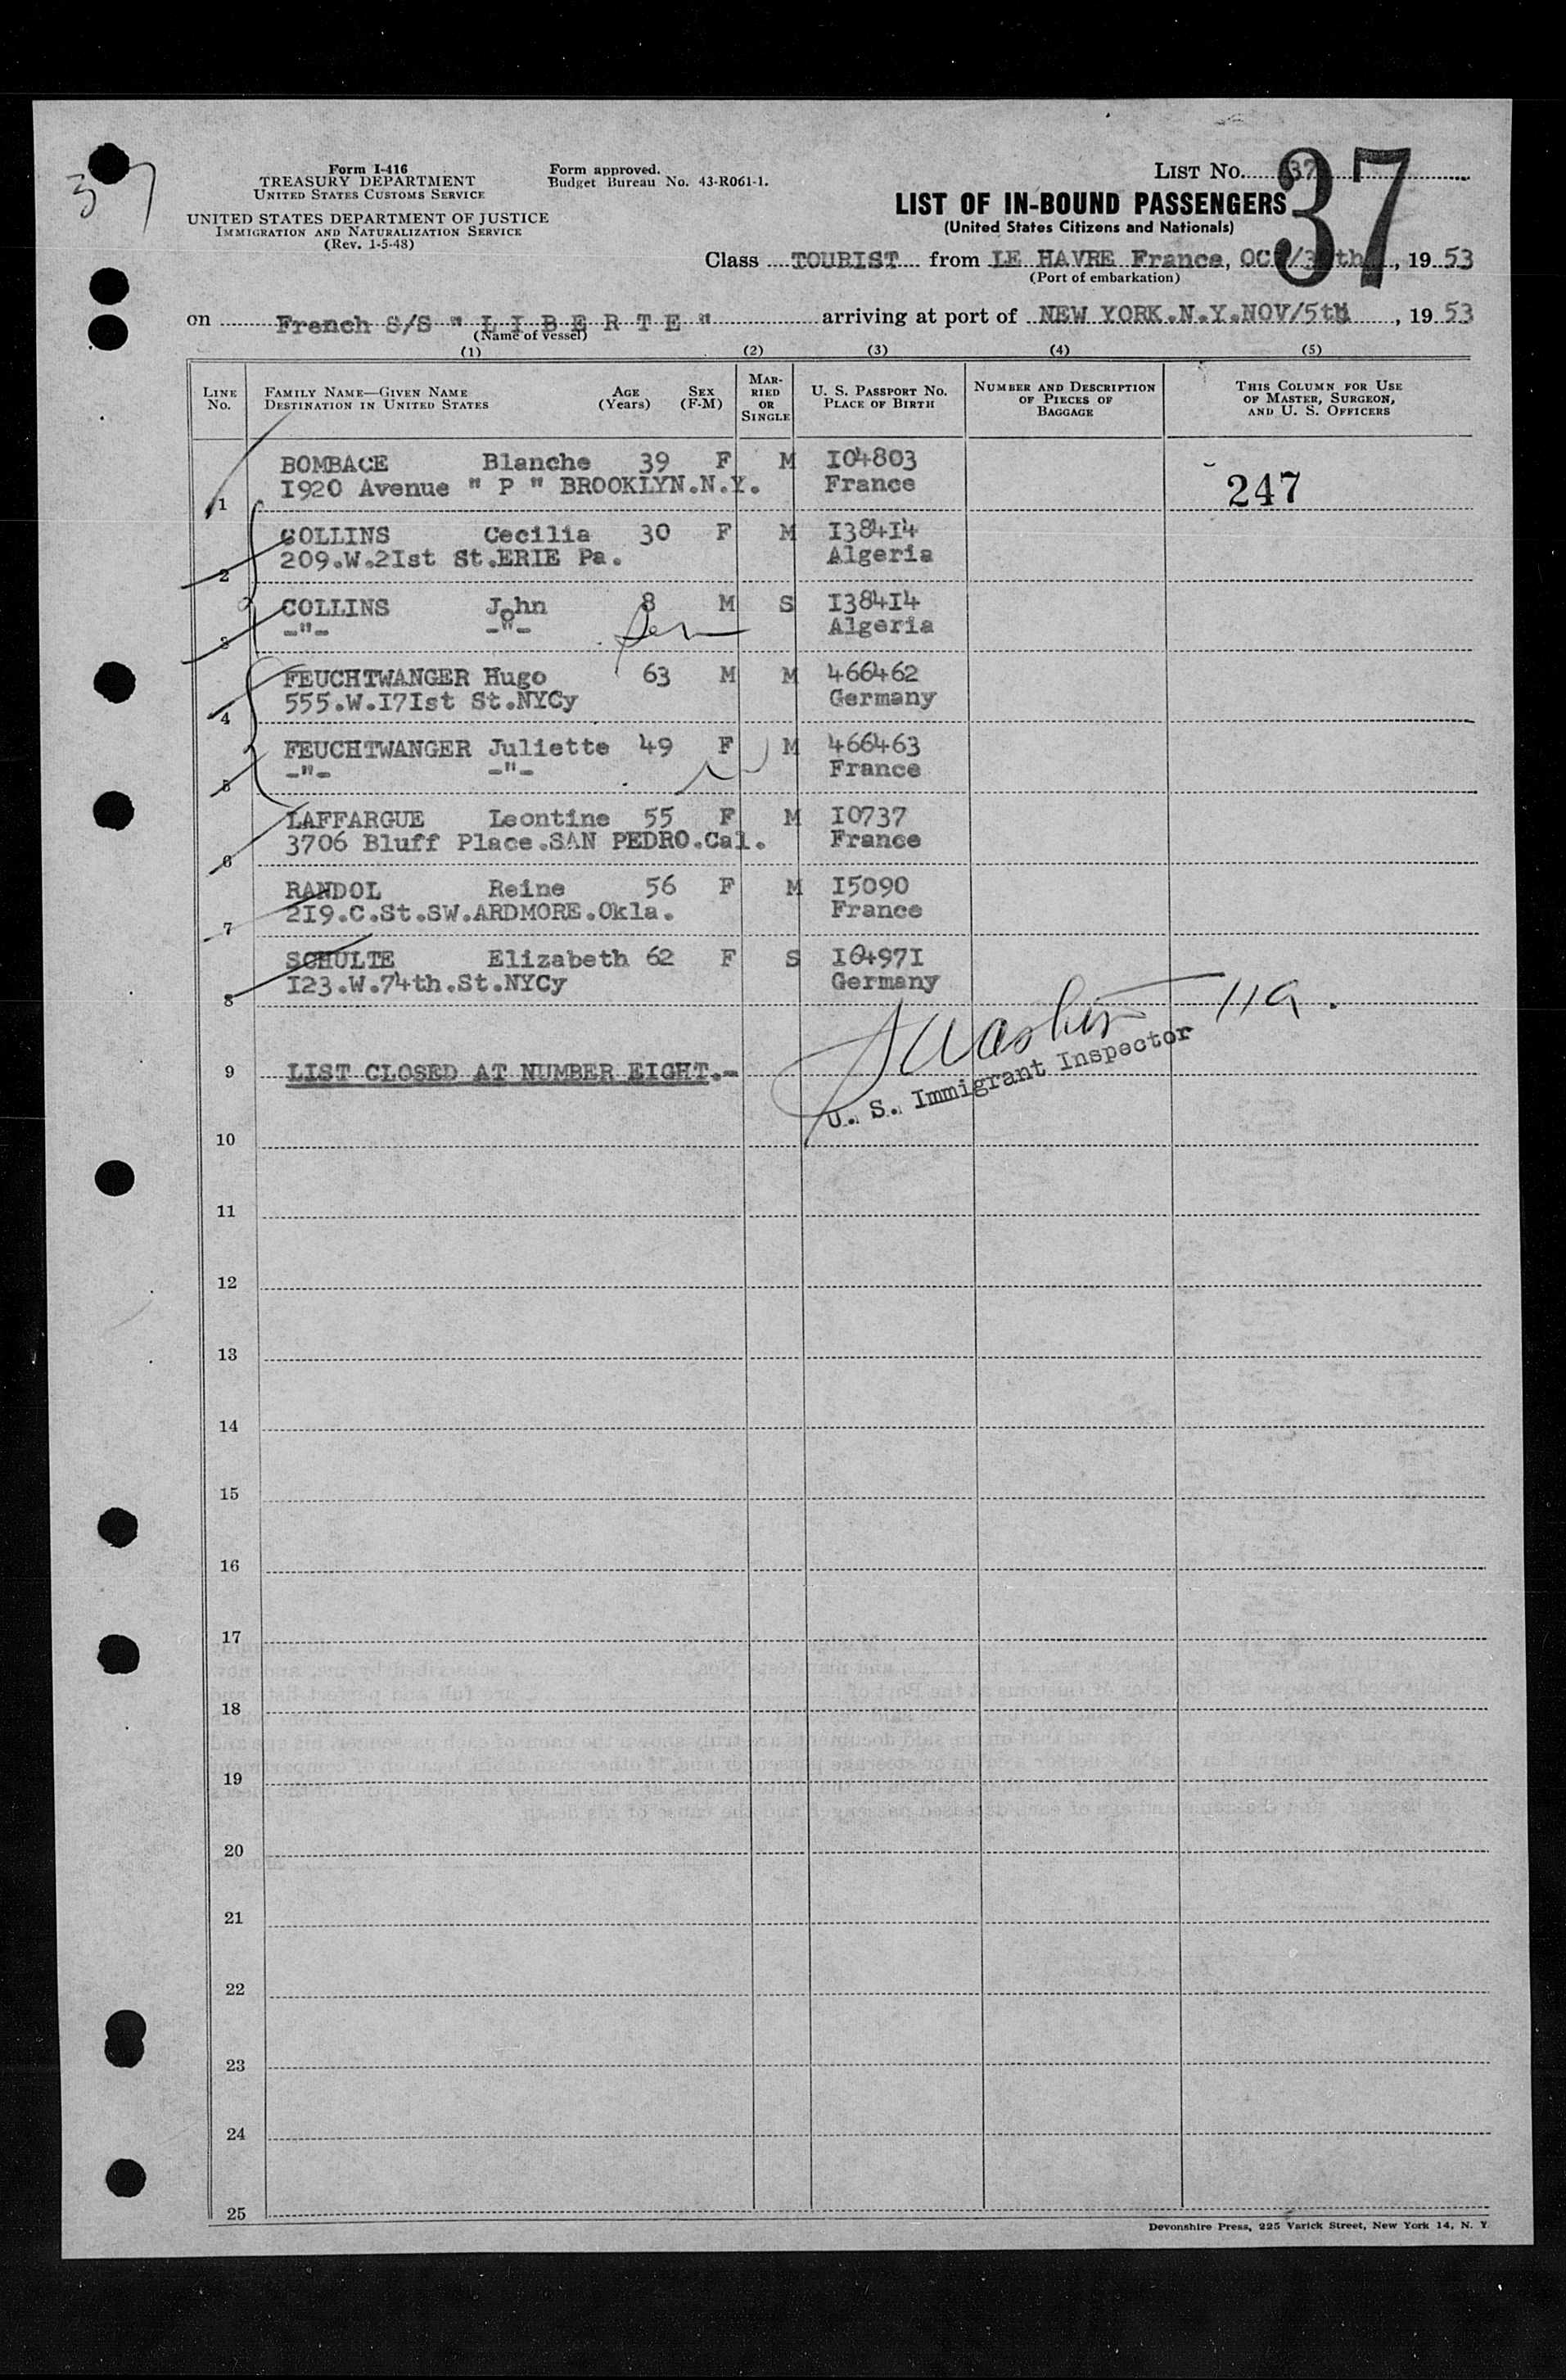 37
Form I-416
TREASURY DEPARTMENT
UNITED STATES CUSTOMS SERVICE
UNITED STATES DEPARTMENT OF JUSTICE
IMMIGRATION AND NATURALIZATION SERVICE
(Rev. 1-5-48)
Form approved.
Budget Bureau No. 43-R061-1.
LIST NO. 37
37
LIST OF IN-BOUND PASSENGERS
(United States Citizens and Nationals)
Class TOURIST from LE HAVRE France, , 19 53
(Port of embarkation)
on French S/S " L I B E R T E " arriving at port of NEW YORK.N.Y.NOV/5th, 19 53
(Name of vessel)
(1) (2) (3) (4) (5)
LINE No.
FAMILY NAME—GIVEN NAME AGE (Years) SEX (F-M)
DESTINATION IN UNITED STATES
MARRIED OR SINGLE
U. S. PASSPORT NO.
PLACE OF BIRTH
NUMBER AND DESCRIPTION
OF PIECES OF
BAGGAGE
THIS COLUMN FOR USE
OF MASTER, SURGEON,
AND U. S. OFFICERS
BOMBACE Blanche 39 F M I04803
1 I920 Avenue " P " BROOKLYN.N.Y. France 247
COLLINS Cecilia 30 F M I384I4
2 209.W.2Ist St.ERIE Pa. Algeria
COLLINS John 8 M S I384I4
3 -"- -"- Algeria
FEUCHTWANGER Hugo 63 M M 466462
4 555.W.I7Ist St.NYCy Germany
FEUCHTWANGER Juliette 49 F M 466463
5 -"- -"- France
LAFFARGUE Leontine 55 F M I0737
6 3706 Bluff Place.SAN PEDRO.Cal. France
RANDOL Reine 56 F M I5090
7 2I9.C.St.SW.ARDMORE.Okla. France
SCHULTE Elizabeth 62 F S I6497I
8 I23.W.74th.St.NYCy Germany
9 LIST CLOSED AT NUMBER EIGHT.-
U. S. Immigrant Inspector
10
11
12
13
14
15
16
17
18
19
20
21
22
23
24
25
Devonshire Press, 225 Varick Street, New York 14, N. Y